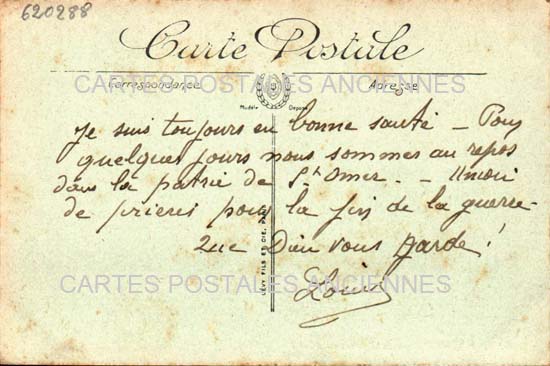 620288
Carte Postale
CARTES POSTALES ANCIENNES
Correspondance
Adresse
Modèle Déposé
Je suis toujours en bonne santé – Pour
quelques jours nous sommes au repos
dans la patrie de St Omer. – Union
de prières pour la fin de la guerre –
Que Dieu vous garde !
CARTES POSTALES ANCIENNES
Louis
LÉVY FILS ET CIE, PARIS